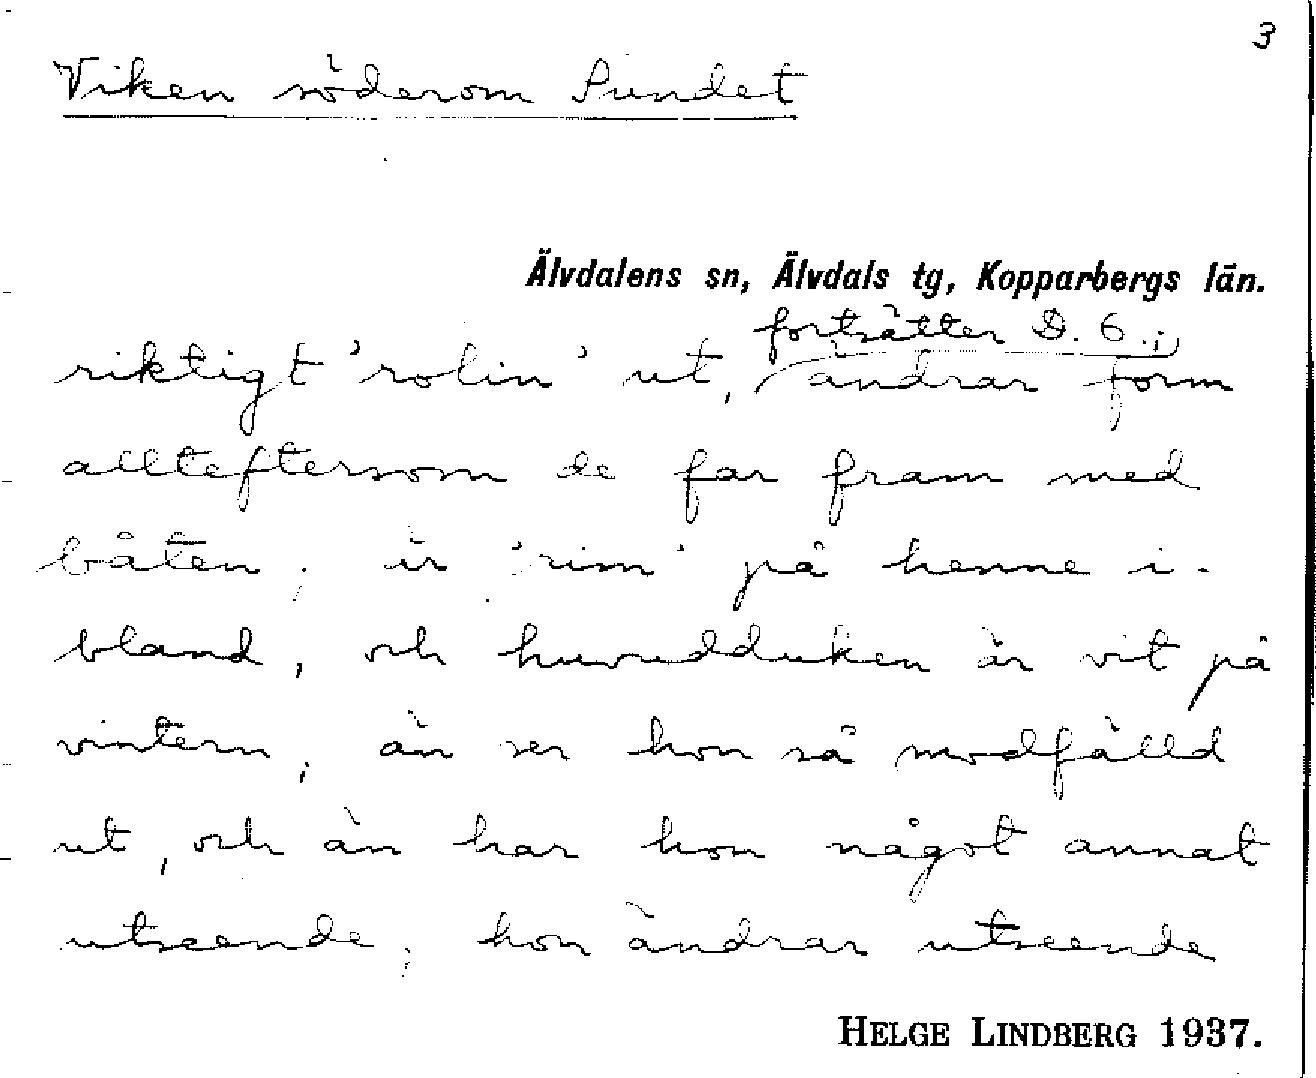 3
Viken söderom Sundet
Älvdalens sn, Älvdals tg, Kopparbergs län.
fortsätter D. 6.;
riktigt 'rolin' ut, ändrar form
allteftersom de far fram med
båten; är 'rim' på henne i-
bland, och huvudduken är vit på
vintern; än ser hon så modfälld
ut, och än har hon något annat
utseende; hon ändrar utseende
HELGE LINDBERG 1937.